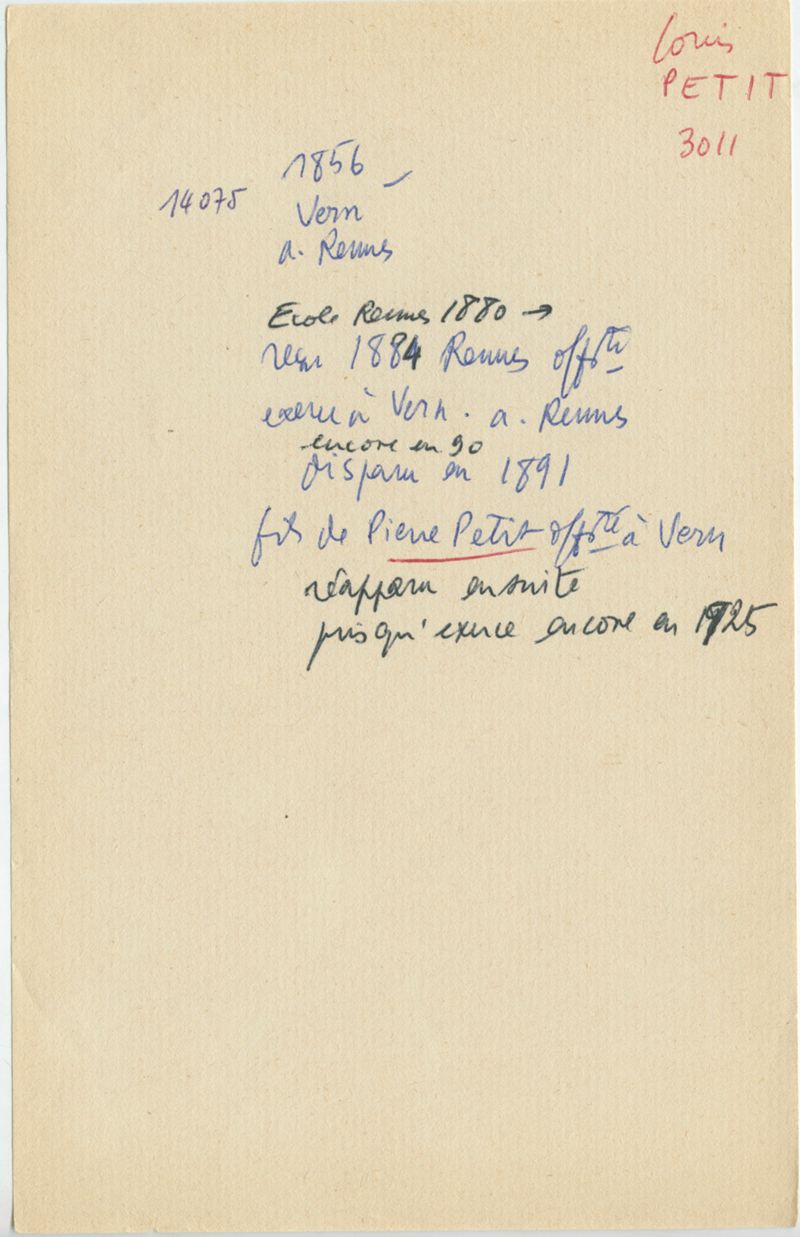 Louis
PETIT
3011
1856 –
14075 Vern
a. Rennes
Ecole Rennes 1880 →
reçu 1884 Rennes offté
exerce à Vern. a. Rennes
encore en 90
disparu en 1891
fils de Pierre Petit offté à Vern
réapparu ensuite
puisqu'exerce encore en 1925